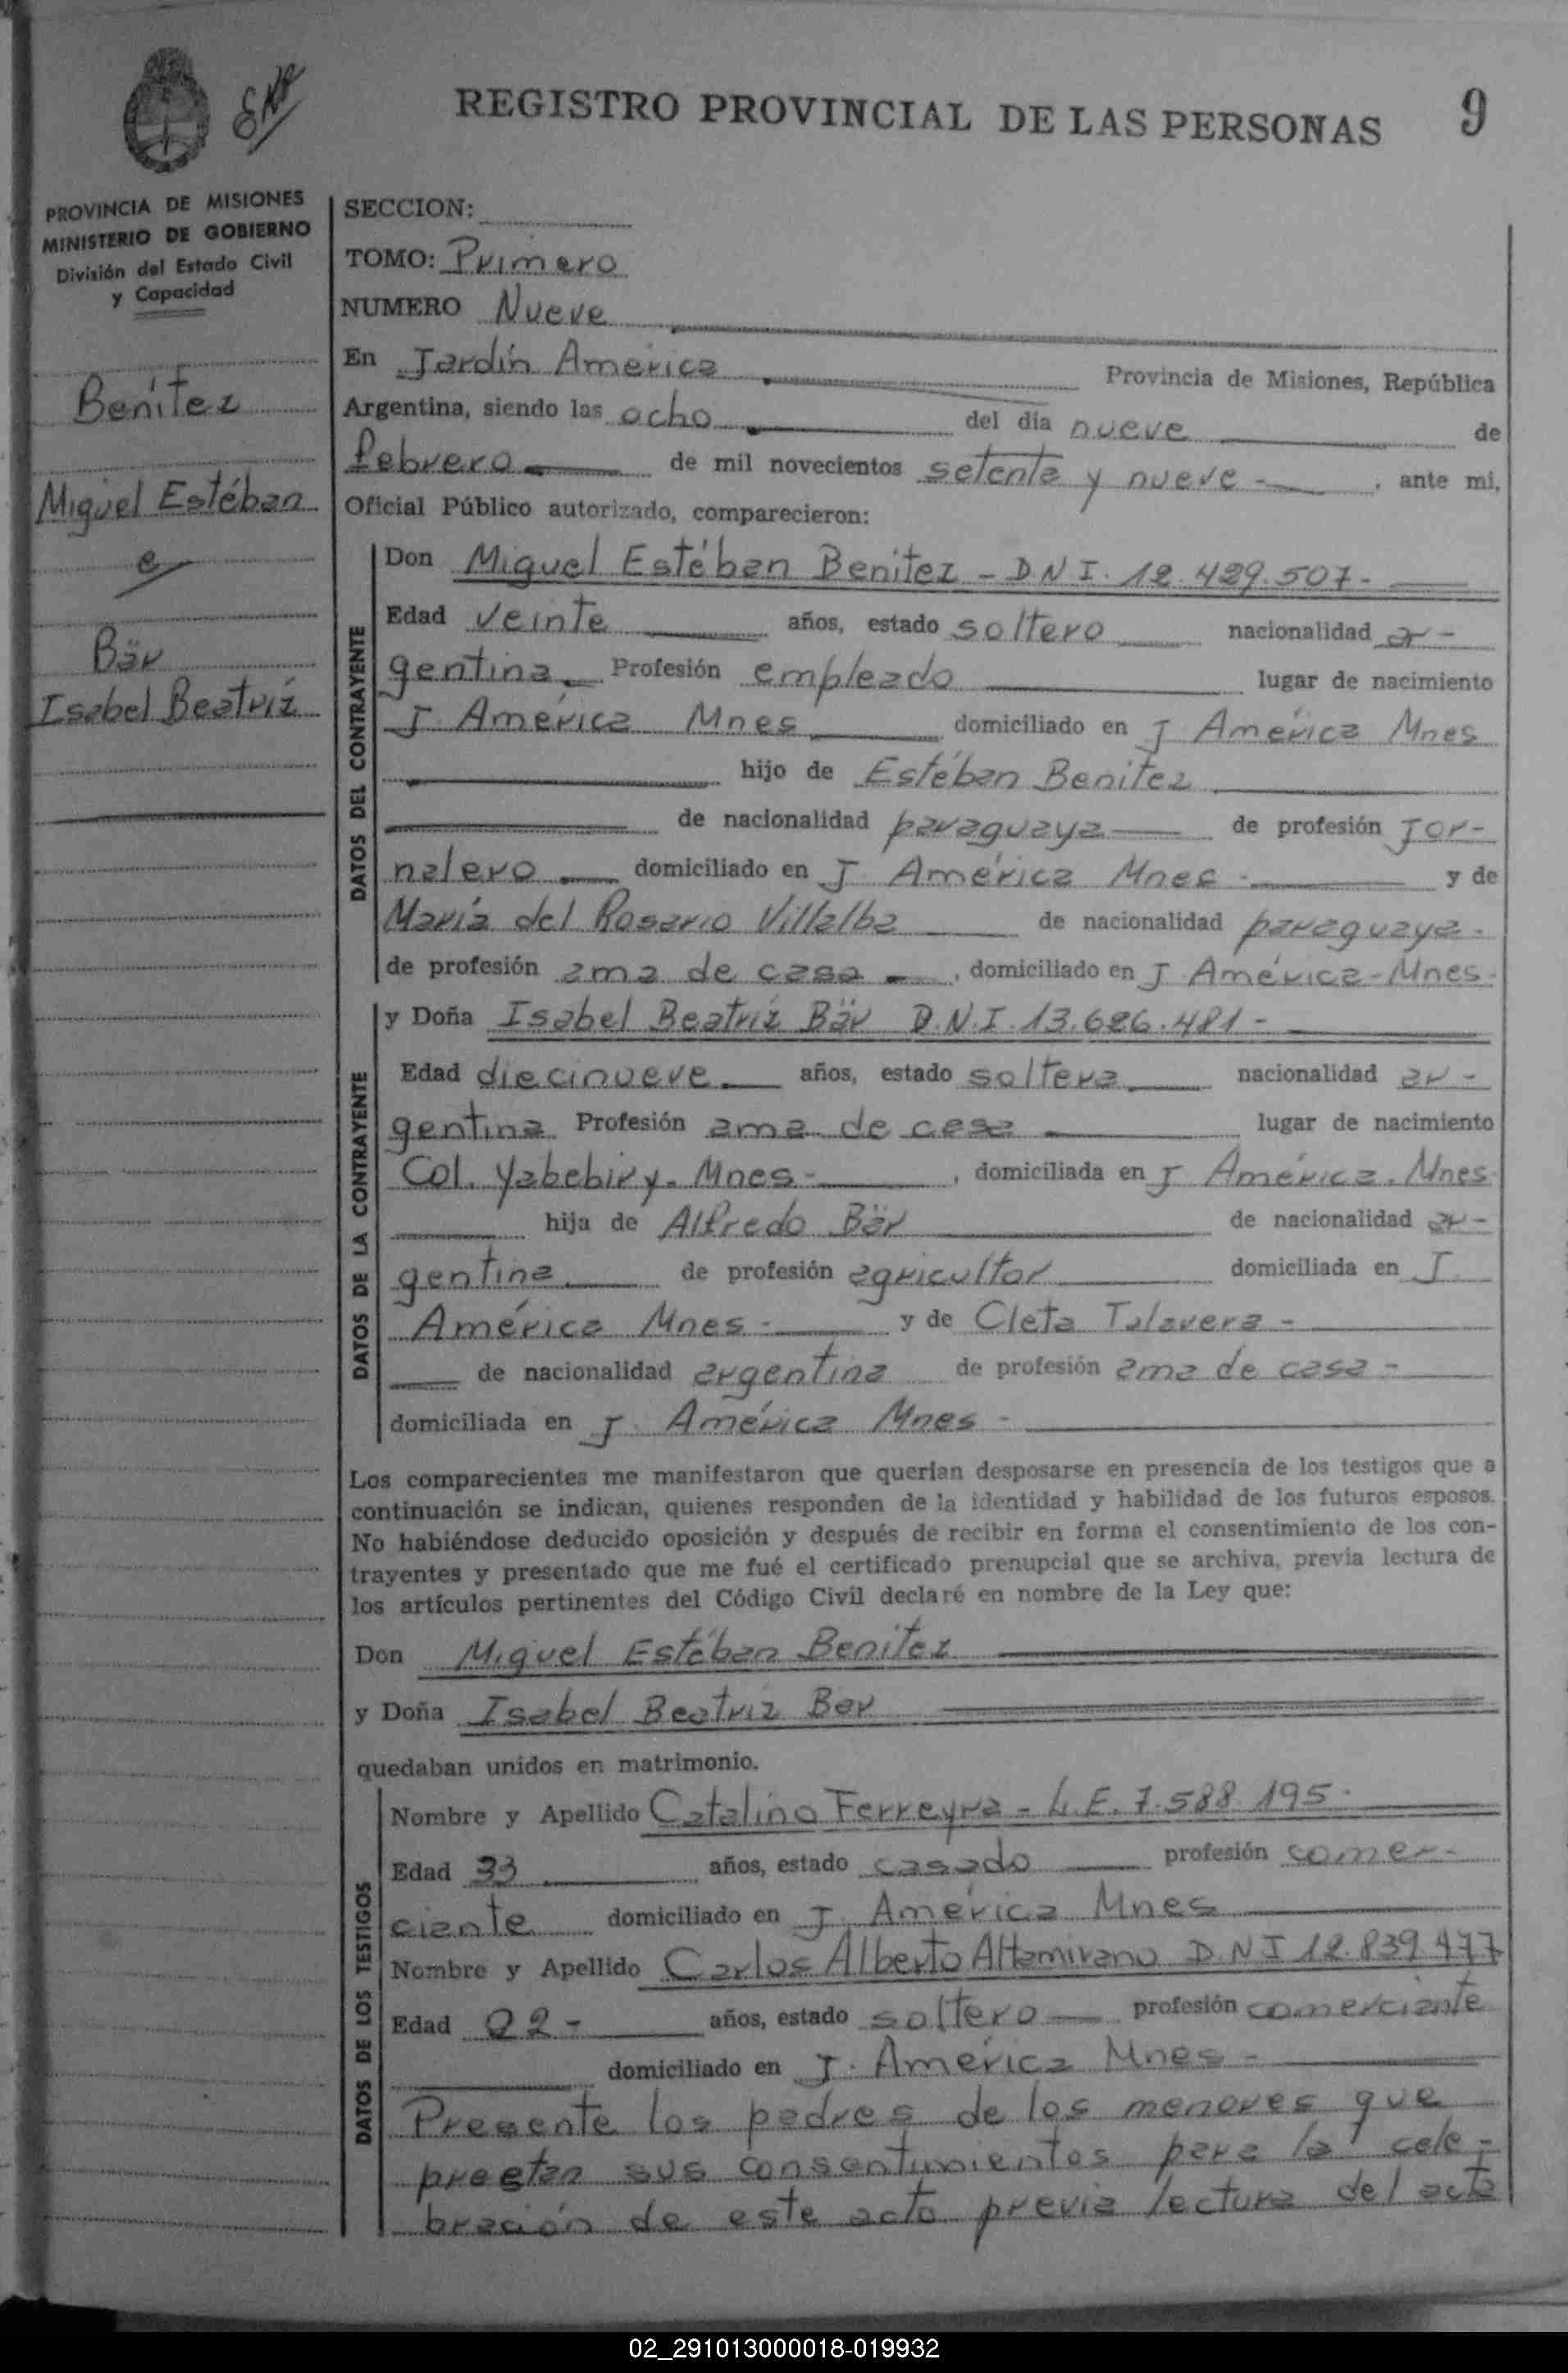 REGISTRO PROVINCIAL DE LAS PERSONAS 9
PROVINCIA DE MISIONES
MINISTERIO DE GOBIERNO
División del Estado Civil
y Capacidad
Benítez
Miguel Estéban
e
Bär
Isabel Beatríz
SECCION:
TOMO: Primero
NUMERO Nueve
En Jardín América Provincia de Misiones, República
Argentina, siendo las ocho del día nueve de
febrero de mil novecientos setenta y nueve -, ante mi,
Oficial Público autorizado, comparecieron:
DATOS DEL CONTRAYENTE
Don Miguel Estéban Benítez - DNI. 12.429.507-
Edad veinte años, estado soltero nacionalidad ar-
gentina Profesión empleado lugar de nacimiento
J América Mnes domiciliado en J América Mnes
hijo de Estéban Benítez
de nacionalidad paraguaya de profesión jor-
nalero domiciliado en J. América Mnes - y de
María del Rosario Villalba de nacionalidad paraguaya-
de profesión ama de casa, domiciliado en J América-Mnes-
DATOS DE LA CONTRAYENTE
y Doña Isabel Beatríz Bär D.N.I. 13.626.481-
Edad diecinueve años, estado soltera nacionalidad ar-
gentina Profesión ama de casa lugar de nacimiento
Col. Yabebiry- Mnes-, domiciliada en J América. Mnes
hija de Alfredo Bär de nacionalidad ar-
gentina de profesión agricultor domiciliada en J.
América Mnes- y de Cleta Talavera-
de nacionalidad argentina de profesión ama de casa-
domiciliada en J. América Mnes-
Los comparecientes me manifestaron que querían desposarse en presencia de los testigos que a
continuación se indican, quienes responden de la identidad y habilidad de los futuros esposos.
No habiéndose deducido oposición y después de recibir en forma el consentimiento de los con-
trayentes y presentado que me fué el certificado prenupcial que se archiva, previa lectura de
los artículos pertinentes del Código Civil declaré en nombre de la Ley que:
Don Miguel Estéban Benítez
y Doña Isabel Beatriz Bar
quedaban unidos en matrimonio.
DATOS DE LOS TESTIGOS
Nombre y Apellido Catalino Ferreyra - L.E. 7.588.195-
Edad 33 años, estado casado profesión comer-
ciante domiciliado en J. América Mnes
Nombre y Apellido Carlos Alberto Altamirano DNI 12.839.477
Edad 22- años, estado soltero profesión comerciante
domiciliado en J. América Mnes-
Presente los padres de los menores que
prestan sus consentimientos para la cele-
bración de este acto previa lectura del acta
02_291013000018-019932